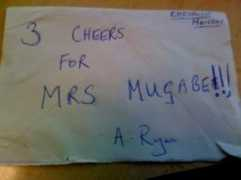 3 CHEERS
FOR
MRS MUGABE!!!
A. Ryan